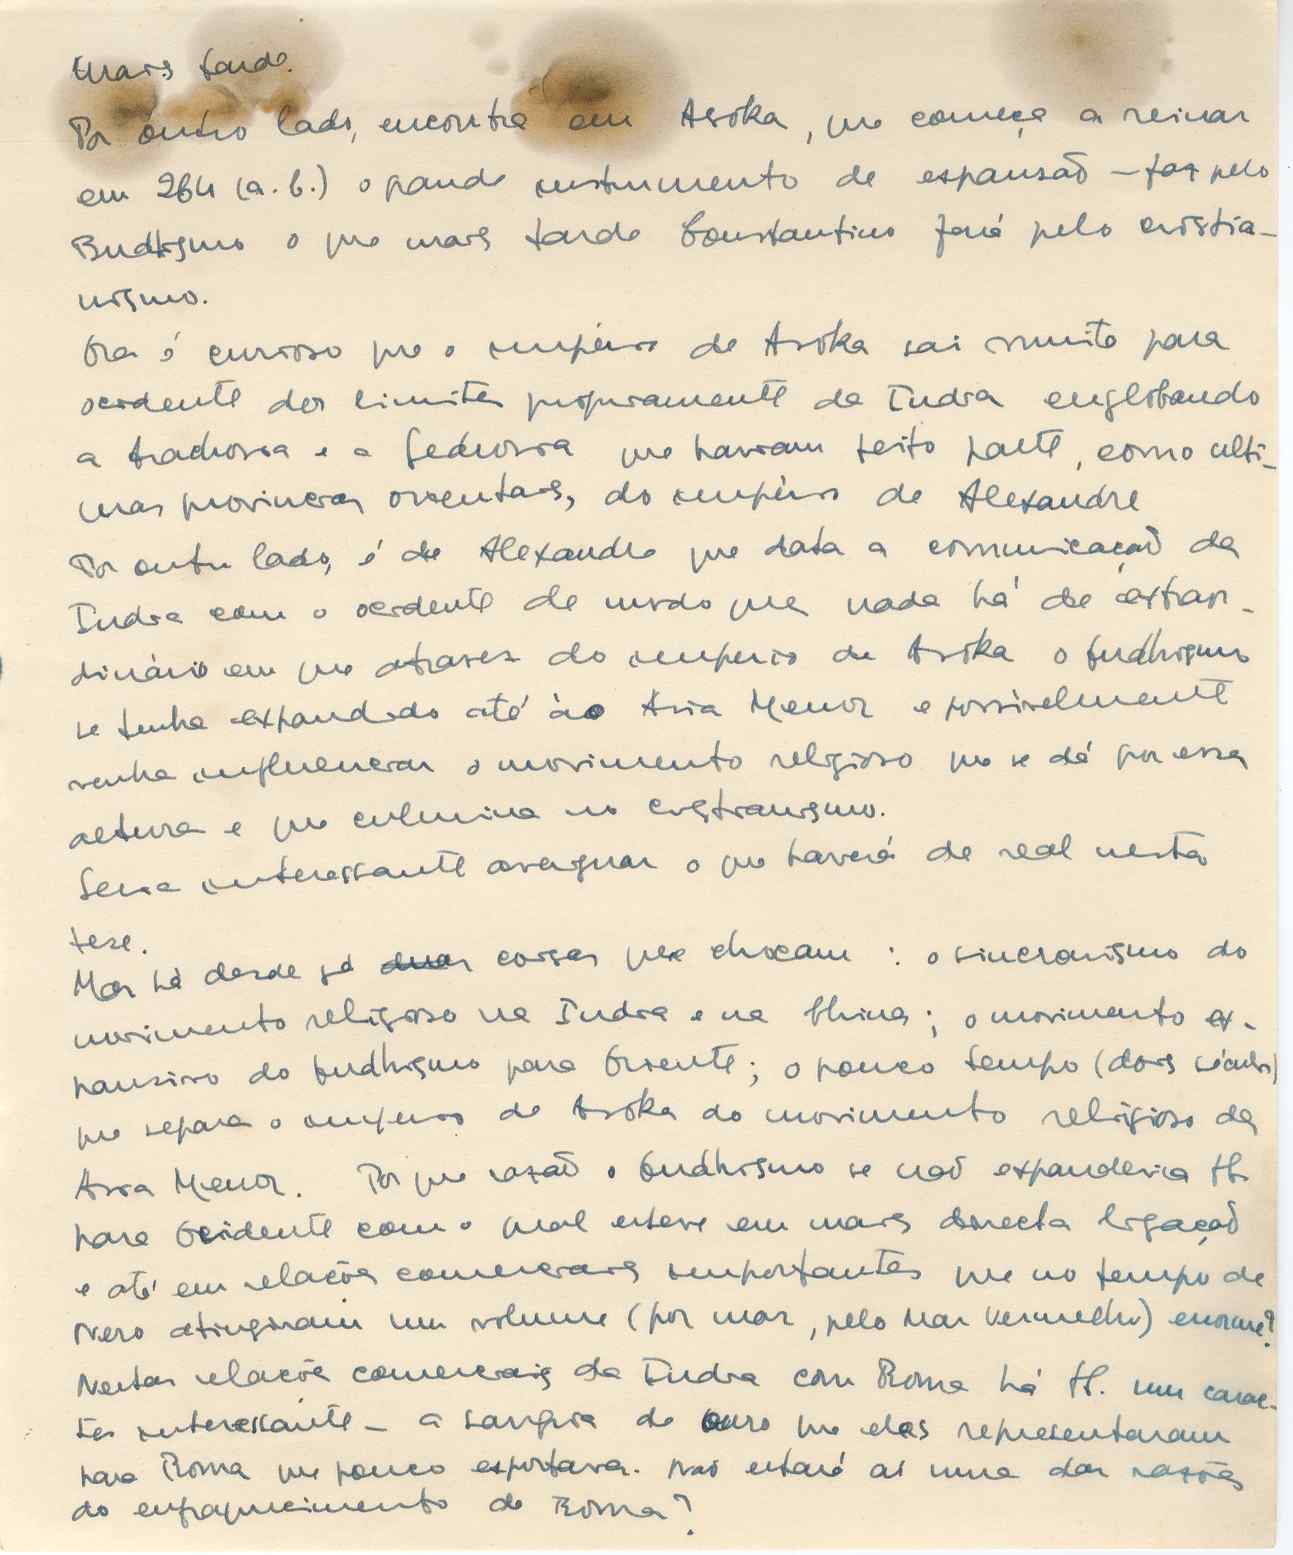 mais tarde.
Por outro lado, encontra em Asoka, que começa a reinar
em 264 (a. C.) o grande instrumento de expansão – faz pelo
Budhismo o que mais tarde Constantino fará pelo cristia-
nismo.
Ora é curioso que o império de Asoka sai muito para
ocidente dos limites propriamente da India englobando
a Arachosia e a Gedrosia que haviam feito parte, como ulti-
mas provincias orientais, do império de Alexandre
Por outro lado, é de Alexandre que data a comunicação da
India com o ocidente de modo que nada há de extraor-
dinário em que atravez do imperio de Asoka o budhismo
se tenha expandido até à Asia Menor e possivelmente
venha influenciar o movimento religioso que se dá por essa
altura e que culmina no cristianismo.
Seria interessante averiguar o que haverá de real nesta
tese.
Mas há desde já duas coisas que chocam : o sincronismo do
movimento religioso na India e na China; o movimento ex-
pansivo do budhismo para Oriente; o pouco tempo (dois séculos)
que separa o imperio de Asoka do movimento religioso da
Asia Menor. Por que razão o budhismo se não expanderia tb.
para Ocidente com o qual esteve em mais directa ligação
e até em relações comerciais importantes que no tempo de
Nero atingiram um volume (por mar, pelo Mar Vermelho) enorme?
Nestas relações comerciais da India com Roma há tb. um carac-
ter interessante – a sangria de ouro que elas representaram
para Roma que pouco exportava. Não estará aí uma das razões
do enfraquecimento de Roma?